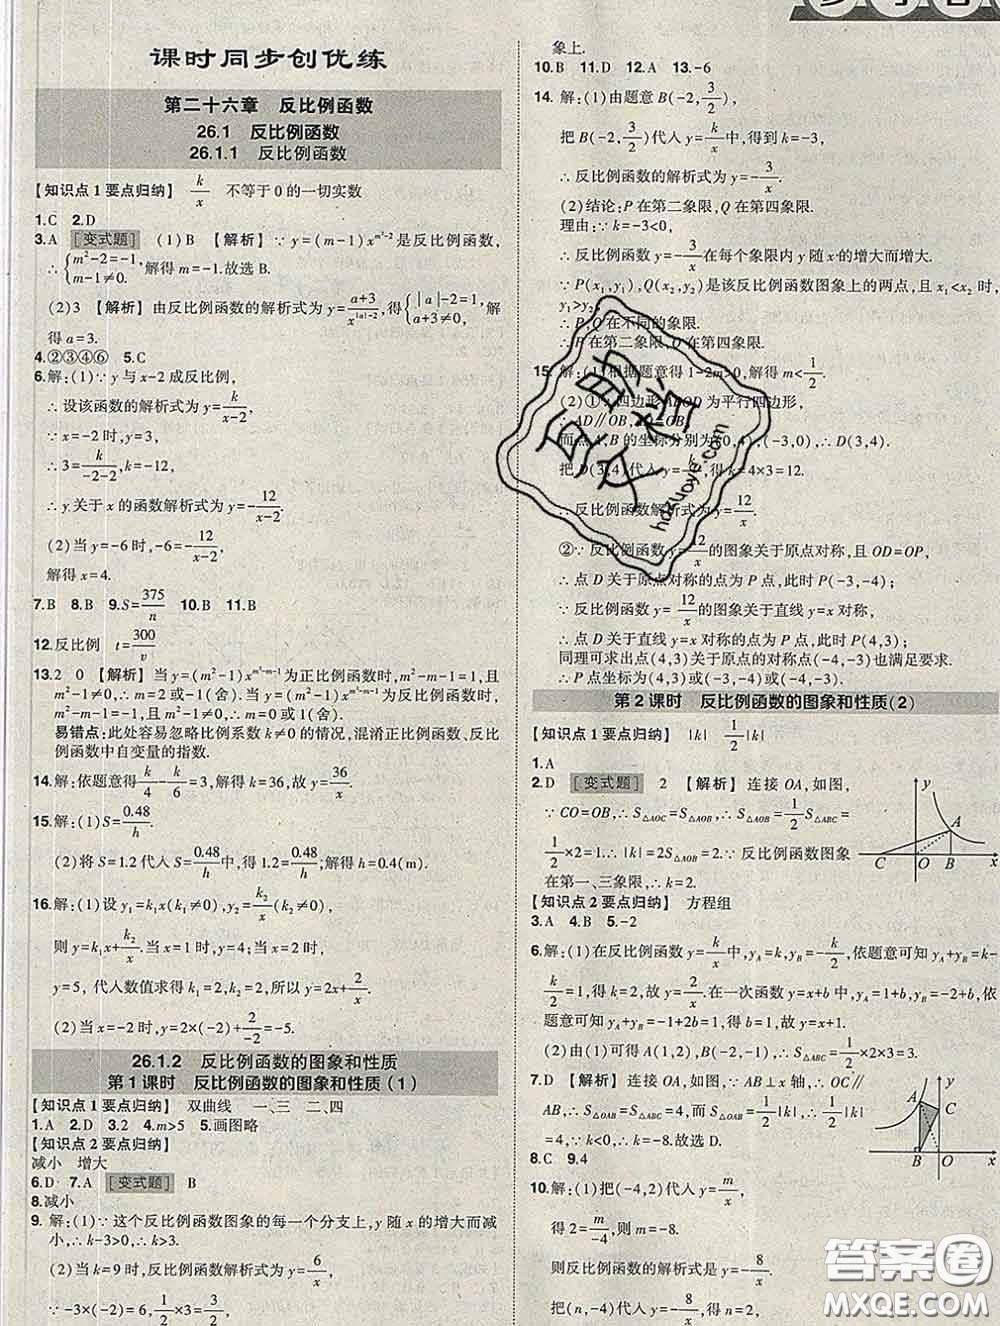 课时同步创优练
第二十六章 反比例函数
26.1 反比例函数
26.1.1 反比例函数
【知识点1要点归纳】 k/x 不等于0的一切实数
1.C 2.D
3.A [变式题] (1)B 【解析】∵y=(m-1)x^{m²-2}是反比例函数,
∴{m²-2=-1, m-1≠0. 解得m=-1.故选B.
(2)3 【解析】由反比例函数的解析式为y=(a+3)/x^{|a|-2},得{|a|-2=1, a+3≠0, 解
得a=3.
4.②③④⑥ 5.C
6.解:(1)∵y与x-2成反比例,
∴设该函数的解析式为y=k/(x-2).
∵x=-2时,y=3,
∴3=k/(-2-2),k=-12,
∴y关于x的函数解析式为y=-12/(x-2).
(2)当y=-6时,-6=-12/(x-2),
解得x=4.
7.B 8.B 9.S=375/n 10.B 11.B
12.反比例 t=300/v
13.2 0 【解析】当y=(m²-1)x^{m²-m-1}为正比例函数时,m²-m-1=1,且
m²-1≠0,∴m=2或-1(舍).当y=(m²-1)x^{m²-m-1}为反比例函数时,
m²-m-1=-1,且m²-1≠0,∴m=0或1(舍).
易错点:此处容易忽略比例系数k≠0的情况,混淆正比例函数、反比
例函数中自变量的指数.
14.解:依题意得k/4-k/6=3,解得k=36,故y=36/x.
15.解:(1)S=0.48/h.
(2)将S=1.2代入S=0.48/h中,得1.2=0.48/h;解得h=0.4(m).
16.解:(1)设y₁=k₁x(k₁≠0),y₂=k₂/x(k₂≠0),
则y=k₁x+k₂/x.当x=1时,y=4;当x=2时,
y=5,代入数值求得k₁=2,k₂=2,所以y=2x+2/x.
(2)当x=-2时,y=2×(-2)+2/(-2)=-5.
26.1.2 反比例函数的图象和性质
第1课时 反比例函数的图象和性质(1)
【知识点1要点归纳】 双曲线 一、三 二、四
1.A 2.D 3.2 4.m>5 5.画图略
【知识点2要点归纳】
减小 增大
6.D 7.A [变式题] B
8.减小
9.解:(1)∵这个反比例函数图象的每一个分支上,y随x的增大而减
小,∴k-3>0,∴k>3.
(2)当k=9时,反比例函数解析式为y=6/x,
∵-3×(-2)=6,1/2×12=6,
象上.
10.B 11.D 12.A 13.-6
14.解:(1)由题意B(-2,3/2),
把B(-2,3/2)代入y=k/x中,得到k=-3,
∴反比例函数的解析式为y=-3/x.
(2)结论:P在第二象限,Q在第四象限.
理由:∵k=-3<0,
∴反比例函数y=-3/x在每个象限y随x的增大而增大.
∵P(x₁,y₁),Q(x₂,y₂)是该反比例函数图象上的两点,且x₁<x₂时,
y₁>y₂,
∴P,Q在不同的象限.
∴P在第二象限,Q在第四象限.
15.解:(1)根据题意得1-2m>0,解得m<1/2.
(2)①∵四边形ABOD为平行四边形,
∴AD∥OB,AD=OB,
而点A,B的坐标分别为(0,4),(-3,0),∴D(3,4).
把D(3,4)代入y=k/x,得k=4×3=12.
∴反比例函数解析式为y=12/x.
②∵反比例函数y=12/x的图象关于原点对称,且OD=OP,
∴点D关于原点对称的点为P点,此时P(-3,-4);
∵反比例函数y=12/x的图象关于直线y=x对称,
∴点D关于直线y=x对称的点为P点,此时P(4,3);
同理可求出点(4,3)关于原点的对称点(-4,-3)也满足要求.
∴P点坐标为(4,3)或(-3,-4)或(-4,-3).
第2课时 反比例函数的图象和性质(2)
【知识点1要点归纳】 |k| 1/2|k|
1.A
2.D [变式题] 2 【解析】连接OA,如图,
∵CO=OB,∴S△AOC=S△AOB,∴S△AOB=1/2S△ABC=
1/2×2=1.∴|k|=2S△AOB=2.∵反比例函数图象
在第一、三象限,∴k=2.
y
A
C O B x
【知识点2要点归纳】 方程组
3.A 4.B 5.-2
6.解:(1)在反比例函数y=k/x中,yA=k,yB=-k/2,依题意可知yA+yB=k-
k/2=1,得k=2,故y=2/x.在一次函数y=x+b中,yA=1+b,yB=-2+b,依
题意可知yA+yB=-1+2b=1,得b=1,故y=x+1.
(2)由(1)可求得C(-1,0),可得S△ABC=1/2×2×3=3.
7.D 【解析】连接OA,如图,∵AB⊥x轴,∴OC∥
AB,∴S△OAB=S△ABC=4,而S△OAB=1/2|k|,∴1/2|k|=
4.∵k<0,∴k=-8.故选D.
A y
C
B O x
8.C 9.4
10.解:(1)把(-4,2)代入y=m/x,
得2=m/(-4),则m=-8.
则反比例函数的解析式是y=-8/x;
把(n,-4)代入y=-8/x,得n=2,
互助文档
hdzuoye.com
答案圈
MXQE.COM